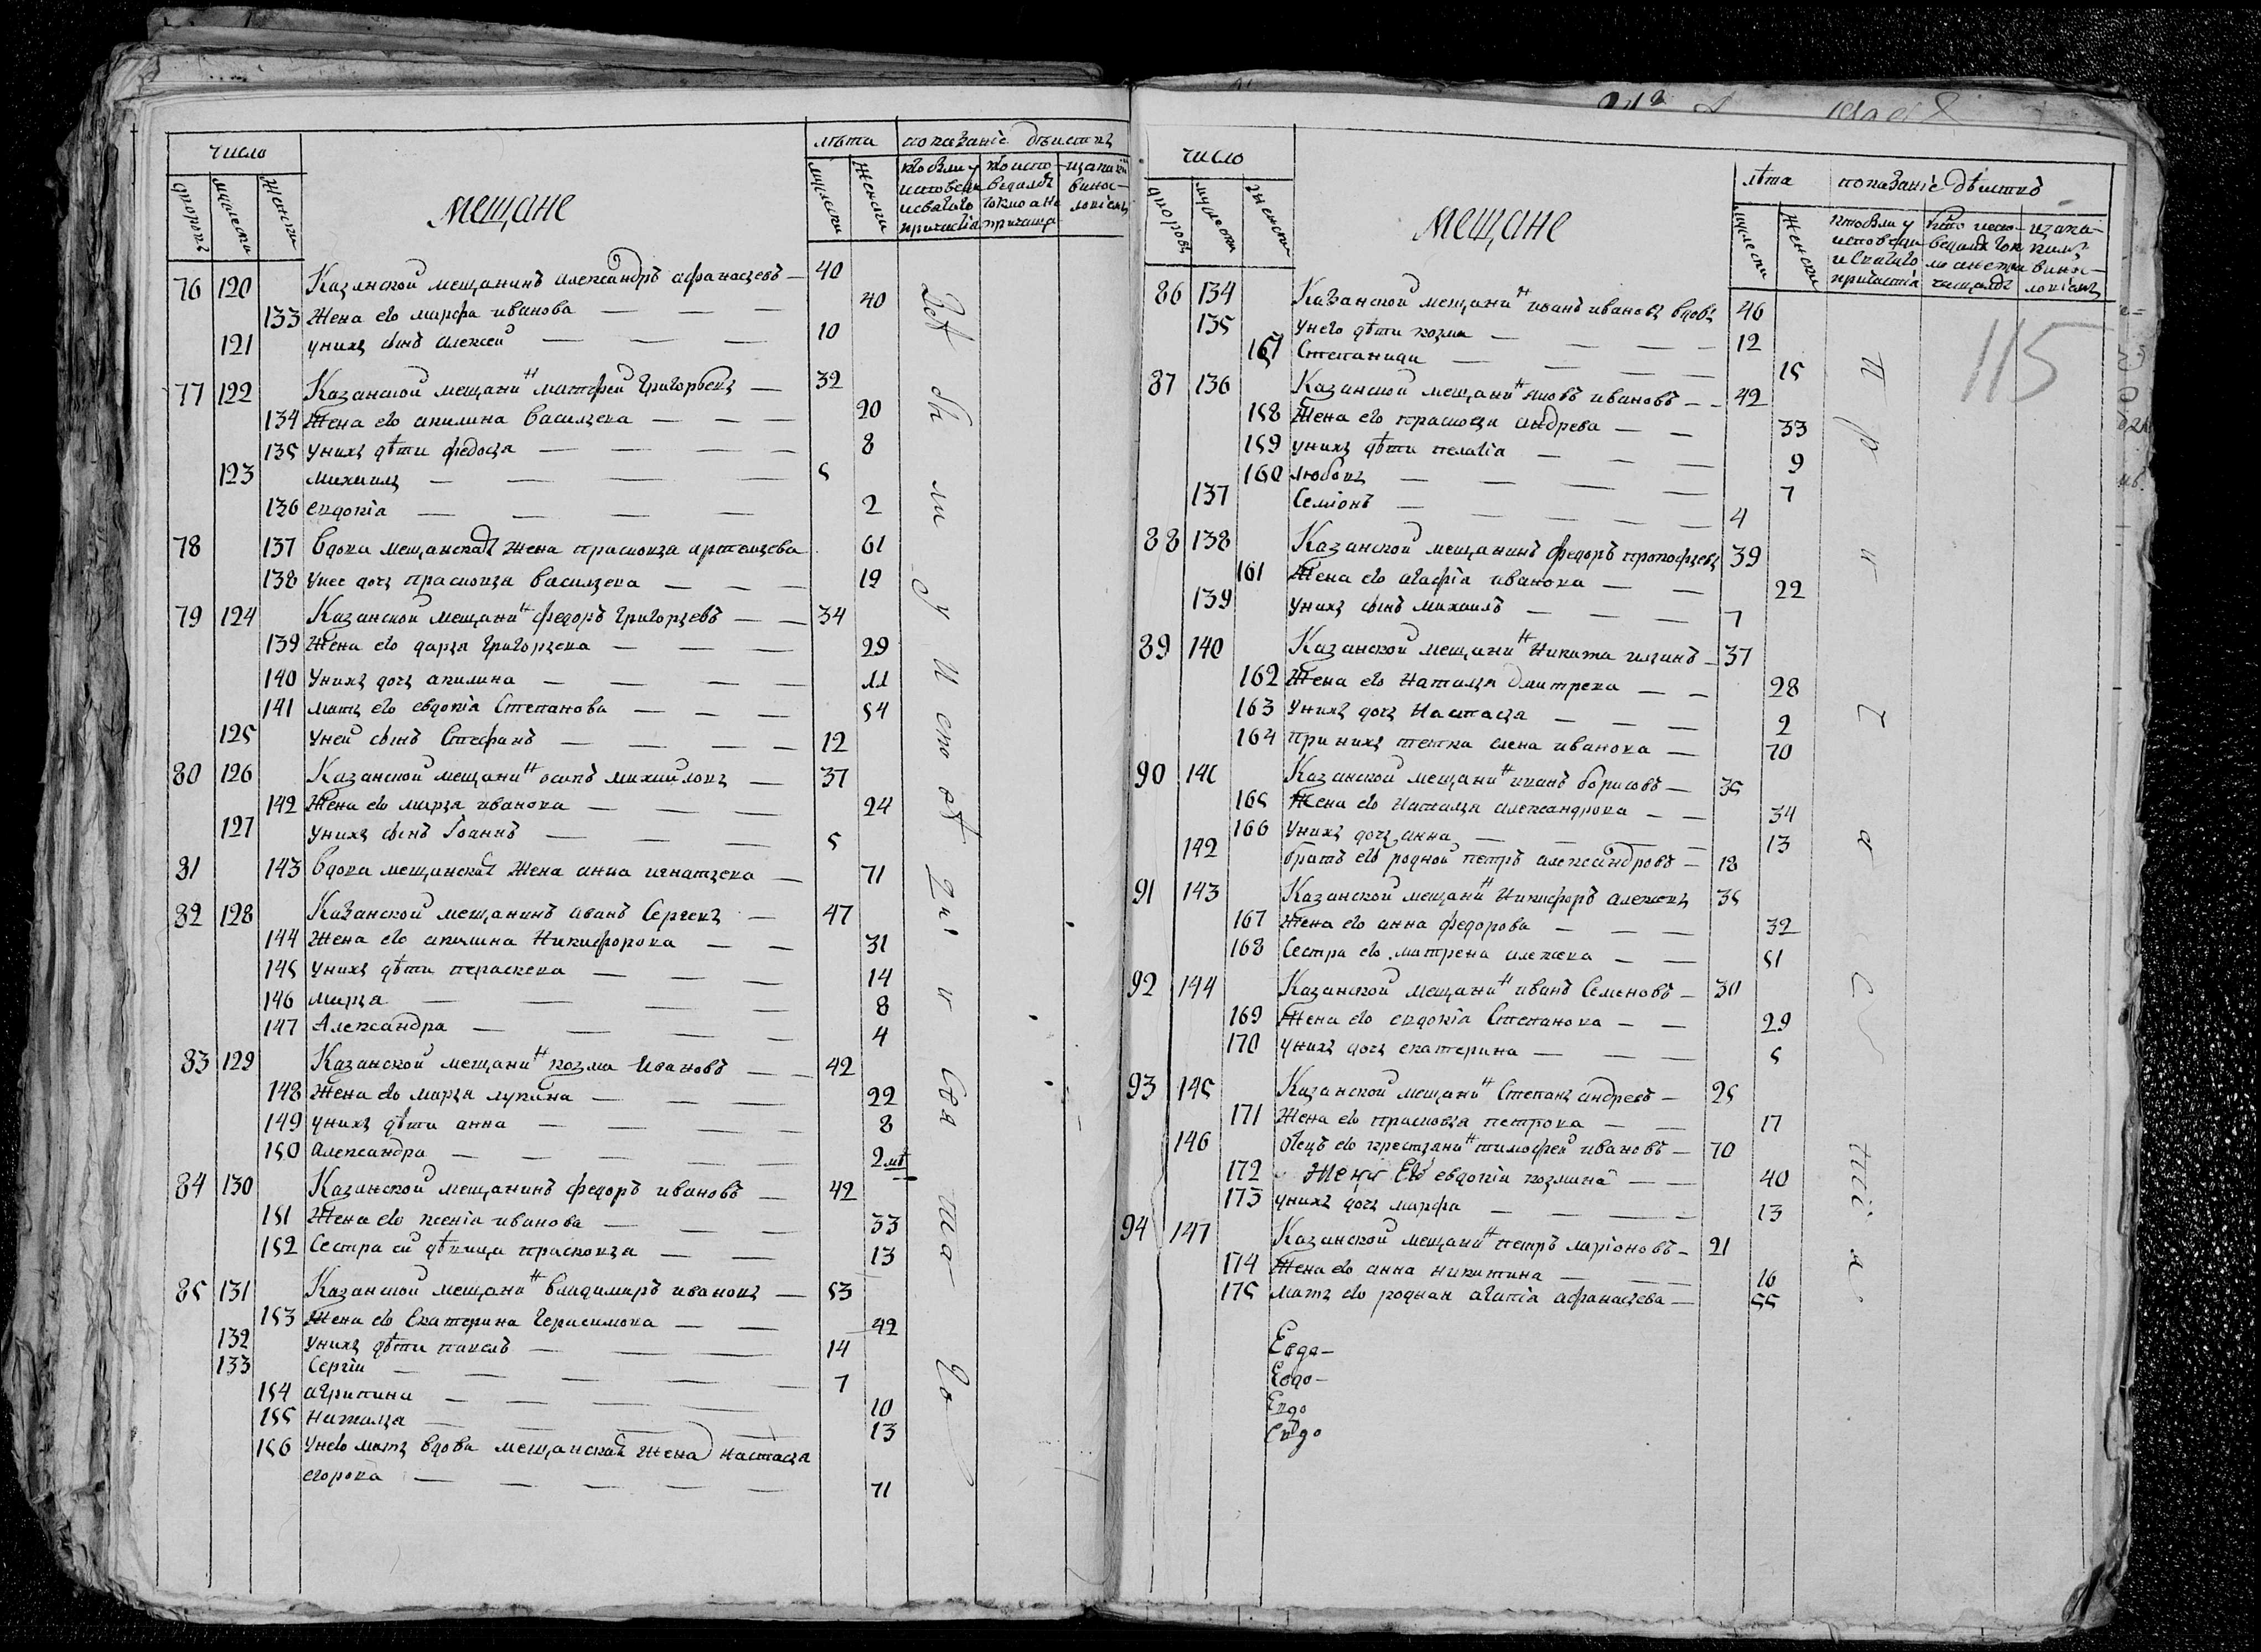 число
дворовъ
мужеска
женска
мещане
лѣта
мужески
женски
показаніе дѣиствъ
кто были у исповеди и святаго причастіа
кто испо-ведалсѧ токмо а не причаща
76 120 Казанской мещанинъ александръ афанасьевъ — 40
133 Жена его марфа иванова — — — 40
121 унихъ сынъ алексей — — — 10
77 122 Казанской мещанинъ матфей григорьевъ — 32
134 Жена его акилина васильева — — — 20
135 унихъ дѣти федосья — — — 8
123 михаилъ — — — — 5
136 евдокіа — — — — 2
78 137 вдова мещанская жена прасковья артемьева 61
138 унее дочь прасковья васильева — — — 19
79 124 Казанской мещанинъ федоръ григорьевъ — — 34
139 Жена его дарья григорьева — — — 29
140 унихъ дочь акилина — — — — 11
141 мать его евдокіа степанова — — — 54
125 уней сынъ стефанъ — — — — 12
80 126 Казанской мещанинъ осипъ михаиловъ — 37
142 Жена его марья иванова — — — 24
127 унихъ сынъ Іоаннъ — — — 5
81 143 вдова мещанская жена анна игнатьева — 71
82 128 Казанской мещанинъ иванъ сергеевъ — 47
144 Жена его акилина никифорова — — 31
145 унихъ дѣти параскева — — — 14
146 марья — — — — 8
147 Александра — — — — 4
83 129 Казанской мещанинъ козма ивановъ — — 42
148 Жена его марья лукина — — — 22
149 унихъ дѣти анна — — — — 8
150 александра — — — — 2
84 130 Казанской мещанинъ федоръ ивановъ — 42
151 Жена его ксеніа иванова — — — 33
152 Сестра ей дѣвица прасковья — — 13
85 131 Казанской мещанинъ владимиръ ивановъ — 53
153 Жена его екатерина герасимова — — 42
132 унихъ дѣти павелъ — — — 14
133 Сергіи — — — — 7
154 агрипина — — — — 10
155 наталья — — — — 13
156 унево мать вдова мещанская жена настасья
егорова — — — — 71
всѣ были у исповѣди и свѧтаго
число
дворовъ
мужеска
женска
мещане
лѣта
мужески
женски
показаніе дѣиствъ
кто были у исповеди и святаго причастіа
115
86 134 Казанской мещанинъ иванъ ивановъ вдовъ 46
135 унего дѣти козма — — — — 12
157 Степанида — — — — 15
87 136 Казанской мещанинъ яковъ ивановъ — — 42
158 Жена его прасковья андрева — — 33
159 унихъ дѣти пелагіа — — — 9
160 любовь — — — — 7
137 Семіонъ — — — — 4
88 138 Казанской мещанинъ федоръ прокофьевъ 39
161 Жена его агафіа иванова — — 22
139 унихъ сынъ михаилъ — — — 7
89 140 Казанской мещанинъ никита — 37
162 Жена его наталья дмитрева — — 28
163 унихъ дочь настасья — — — 2
164 при нихъ тетка елена иванова — 70
90 141 Казанской мещанинъ иванъ борисовъ — 35
165 Жена его наталья александрова — — 34
166 унихъ дочь анна — — — 13
142 братъ его родной петръ александровъ — 18
91 143 Казанской мещанинъ никифоръ алексевъ 35
167 Жена его анна федорова — — — 32
168 Сестра его матрена алексева — — 51
92 144 Казанской мещанинъ иванъ Семеновъ — 30
169 Жена его евдокіа Степанова — — 29
170 унихъ дочь екатерина — — — 5
93 145 Казанской мещанинъ Степанъ андревъ — 25
171 Жена его прасковья петрова — — 17
146 отецъ его крестьянинъ тимофей ивановъ — 70
172 Жена Его евдокіа козмина — — 40
173 унихъ дочь марфа — — — 13
94 147 Казанской мещанинъ петръ ларіоновъ — 21
174 Жена его анна никитина — — — 16
175 мать его родная агапіа афанасьева — 55
Евдо—
Еодо—
Евдо
Евдо
причастіѧ.